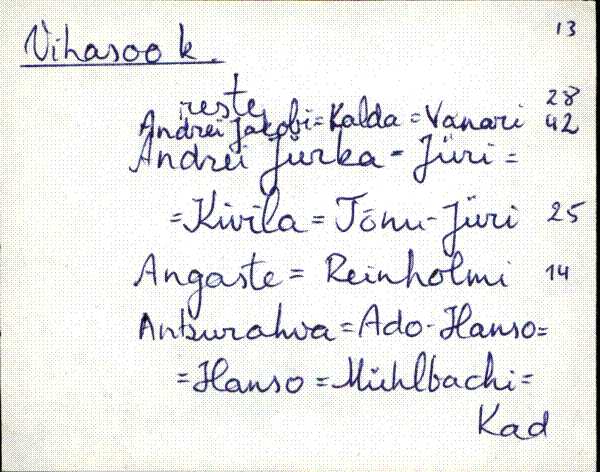 13
Vihasoo k.
reste 28
Andrei Jakobi = Kalda = Vanari 42
Andrei Jürka - Jüri =
= Kivila = Tõnu - Jüri 25
Angaste = Reinholmi 14
Antsurahva = Ado-Hanso =
= Hanso = Mühlbachi =
Kad